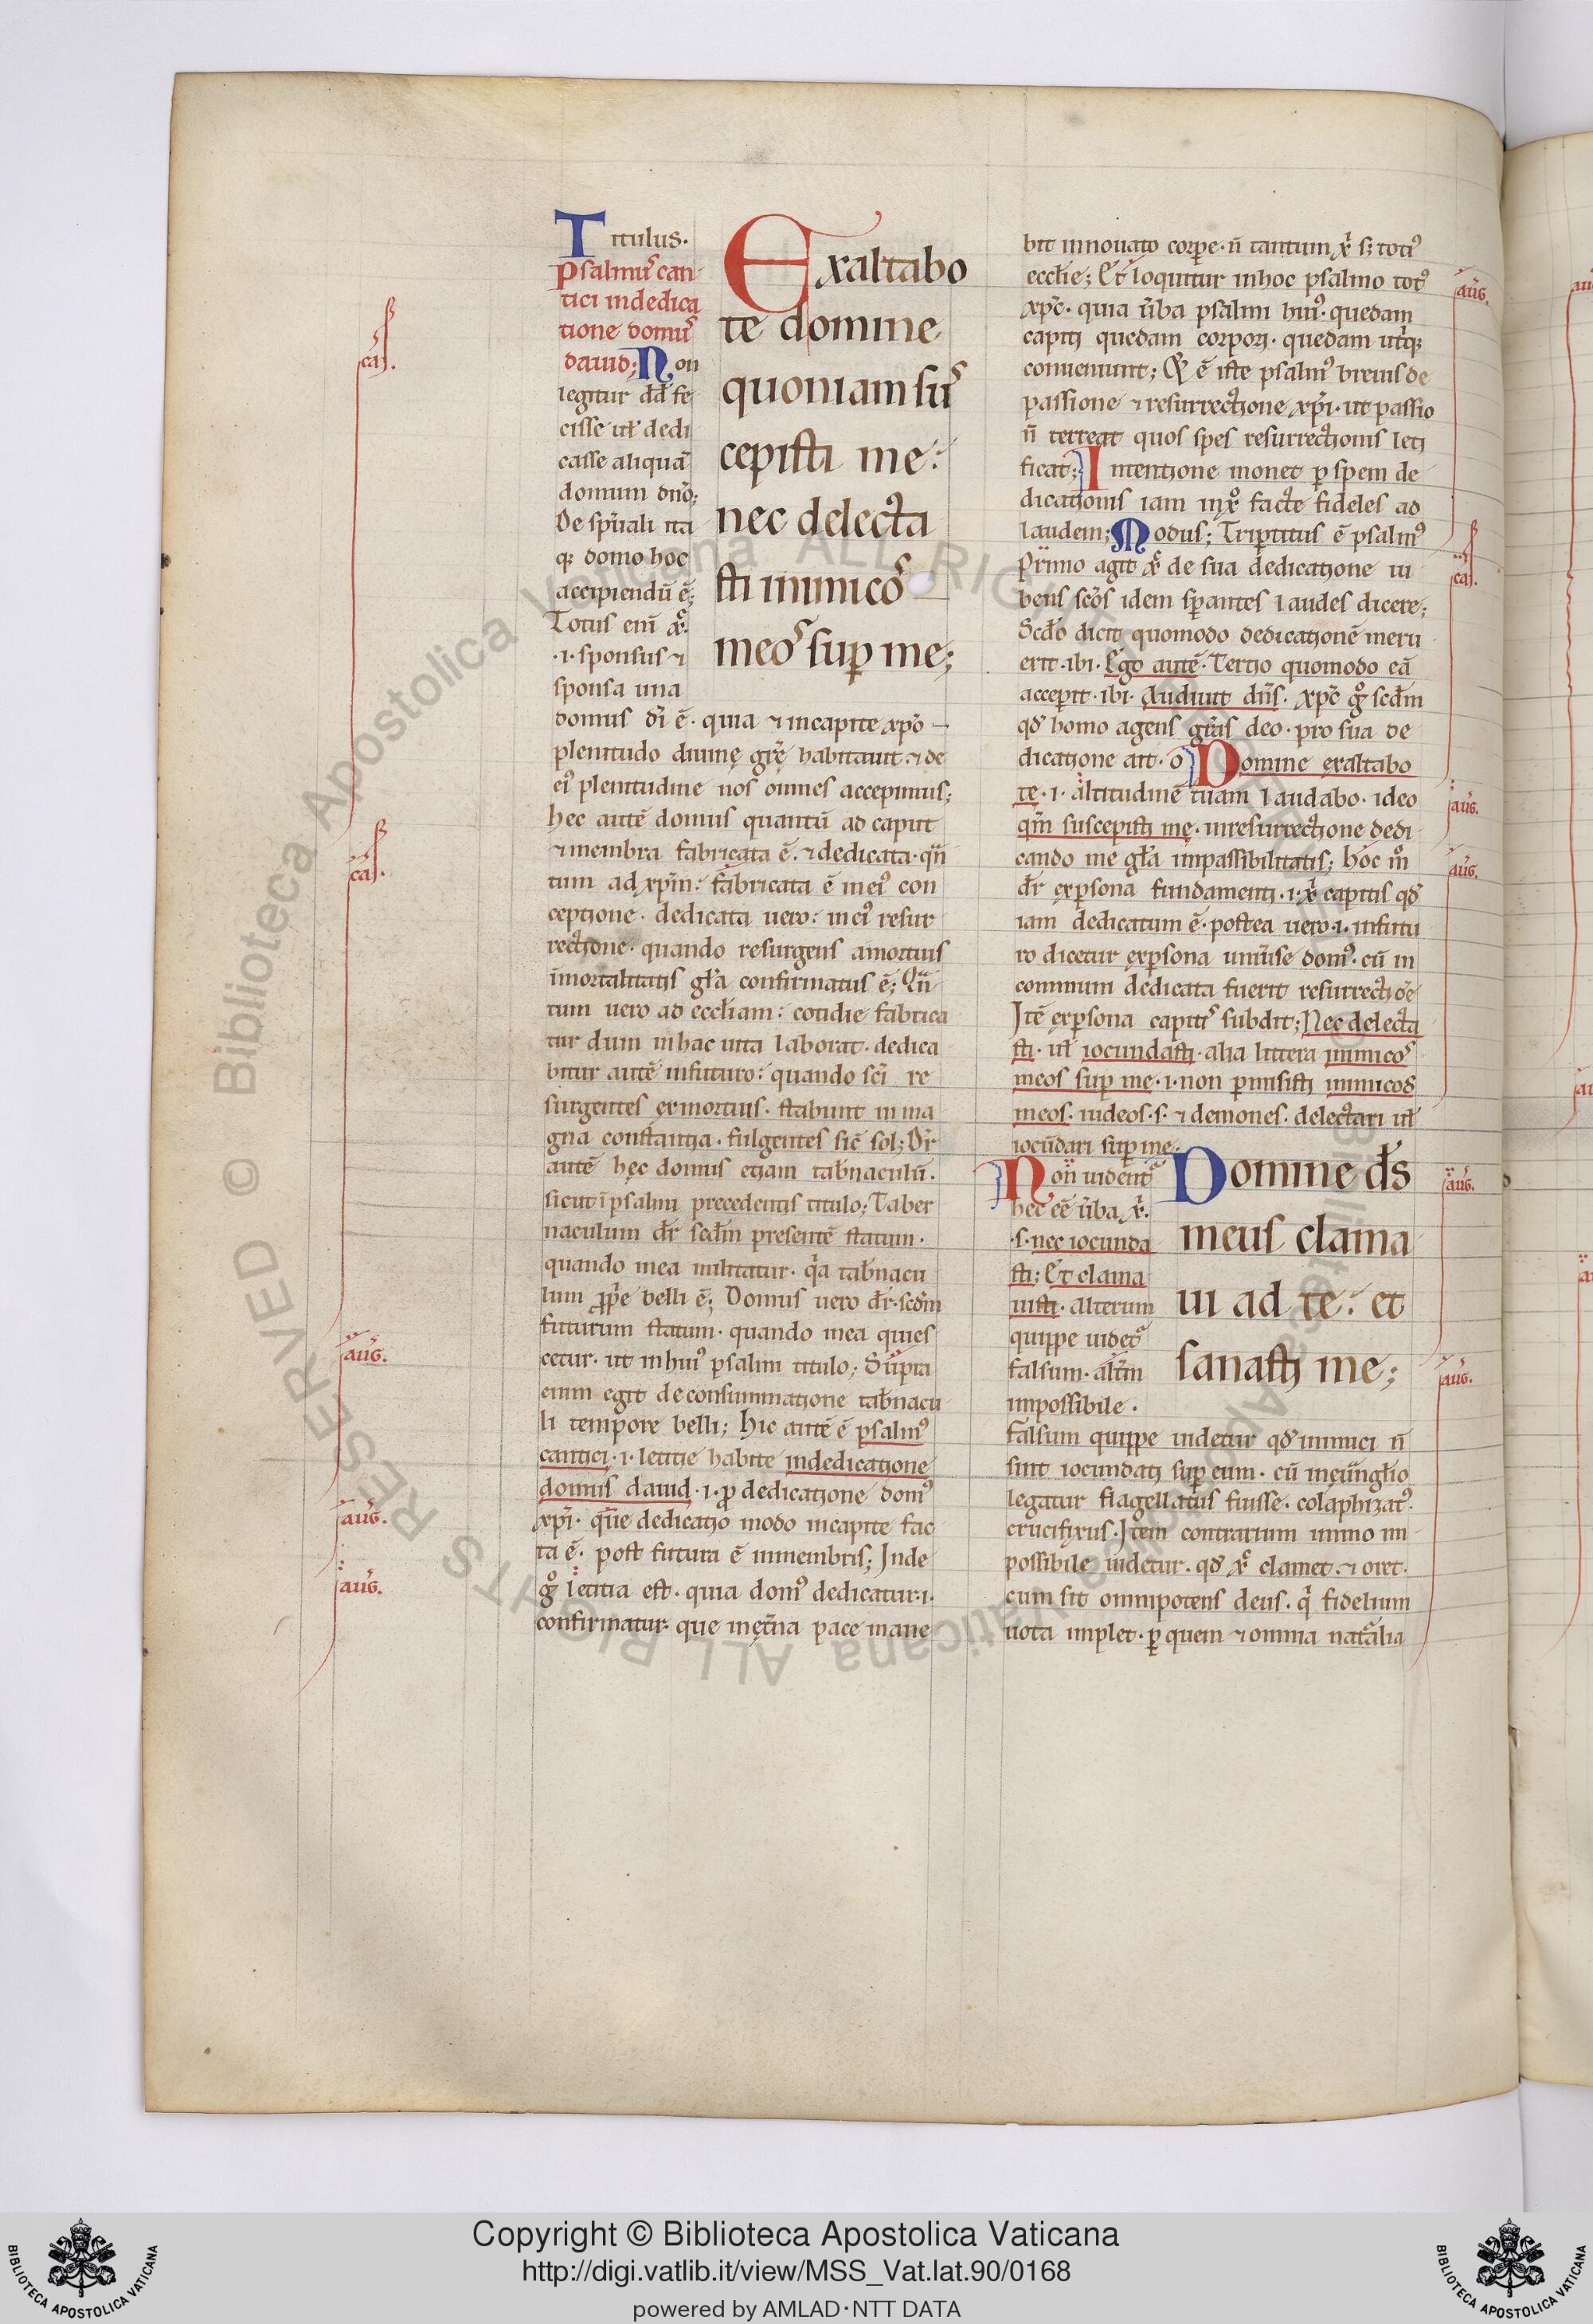 Titulus.
Psalmus can
tici indedica
tione domus
dauid; Non
legitur dd̄ fe
cisse ul̄ dedi
casse aliquā
domum dn̄o;
De sp̄uali ita
q; domo hoc
accipiendū ē;
Totus eni xp̄c.
.i. sponsus ⁊
sponsa una
Exaltabo
te domine
quoniam sus
cepisti me:
nec delecta
sti inimicos
meos sup me;
domus dī ē. quia ⁊ incapite xp̄o
plenitudo diuine grē habitauit. ⁊ de
ei' plenitudine nos omnes accepimus;
hec autē domus quantū ad caput
⁊ membra fabricata ē. ⁊ dedicata. qn̄
tum ad xp̄m: fabricata ē in ei' con
ceptione. dedicata uero: in ei' resur
rectione. quando resurgens a mortuis
īmortalitatis gl̄a confirmatus ē; Qn̄
tum uero ad eccl̄iam: cotidie fabrica
tur dum in hac uita laborat. dedica
bitur autē in futuro: quando sc̄i re
surgentes ex mortuis. stabunt in ma
gna constantia. fulgentes sic̄ sol; Dr̄
autē hec domus etiam tab̄naculū.
sicut ī psalmi precedentis titulo; Taber
naculum dr̄ scd̄m presentē statum.
quando in ea militatur. q̄a tab̄nacu
lum ꝓp̄e belli ē; Domus uero dr̄. scd̄m
futurum statum. quando in ea quies
cetur. ut in hui' psalmi titulo; Supra
enim egit de consummatione tab̄nacu
li tempore belli; Hic autē ē psalm'
cantici. i. letitie habite indedicatione
domus dauid. i. p dedicatione dom'
xp̄i. que dedicatio modo in capite fac
ta ē. post futura ē in membris; Inde
g° letitia est. quia dom' dedicatur. i.
confirmatur. que in et̄na pace mane
bit innouato corpe. n̄ tantum xp̄i s; toti'
eccl̄ie; Et loquitur in hoc psalmo tot'
xp̄c. quia ūba psalmi hui'. quedam
capiti quedam corpori. quedam utq;
conueniunt; ē iste psalm' breuis de
passione ⁊ resurrectione xp̄i. ut passio
n̄ terreat quos spes resurrectionis leti
ficat; Intentione monet p spem de
dicationis iam in xp̄o facte fideles ad
laudem; Modus; Tripartitus ē psalm'
Primo agit xp̄c de sua dedicatione iu
bens sc̄os idem sperantes laudes dicere;
Scd̄o dicit quomodo dedicationē meru
erit. ibi. Ego autē. Tertio quomodo eā
accepit. ibi. Audiuit dn̄s. xp̄c g° scd̄m
qd̄ homo agens grās deo. pro sua de
dicatione ait. o Domine exaltabo
te. i. altitudinē tuam laudabo. ideo
qm̄ suscepisti me. in resurrectione dedi
cando me gl̄a impassibilitatis; hoc m°
dr̄ ex persona fundamenti. i. xp̄i capitis qd̄
iam dedicatum ē. postea uero. i. in futu
ro dicetur ex persona uniūse dom'. cū in
commum dedicata fuerit resurrectōe
Itē ex persona capitis subdit; Nec delecta
sti. ul̄ iocundasti. alia littera inimicos
meos sup me. i. non pmisisti inimicos
meos. iudeos. s. ⁊ demones. delectari ul̄
iocūdari sup me.
Non uident'
hec eē ūba xp̄i.
.s. nec iocunda
sti; Et clama
uisti. alterum
quippe uidet'
falsum. alt̄m
impossibile.
Domine d̄s
meus clama
ui ad te: et
sanasti me;
Falsum quippe uidetur qd̄ inimici n̄
sint iocundati sup eum. cū in eūngl̄io
legatur flagellatus fuisse. colaphizat'.
crucifixus. Item contrarium immo im
possibile uidetur. qd̄ xp̄c clamet. ⁊ oret.
cum sit omnipotens deus. q fidelium
uota implet. p quem ⁊ omnia naturalia
cas.
cas.
aug.
aug.
aug.
aug.
cas.
aug.
aug.
aug.
aug.
Biblioteca Apostolica Vaticana ALL RIGHTS RESERVED ©
Copyright © Biblioteca Apostolica Vaticana
http://digi.vatlib.it/view/MSS_Vat.lat.90/0168
powered by AMLAD·NTT DATA
BIBLIOTECA APOSTOLICA VATICANA
BIBLIOTECA APOSTOLICA VATICANA